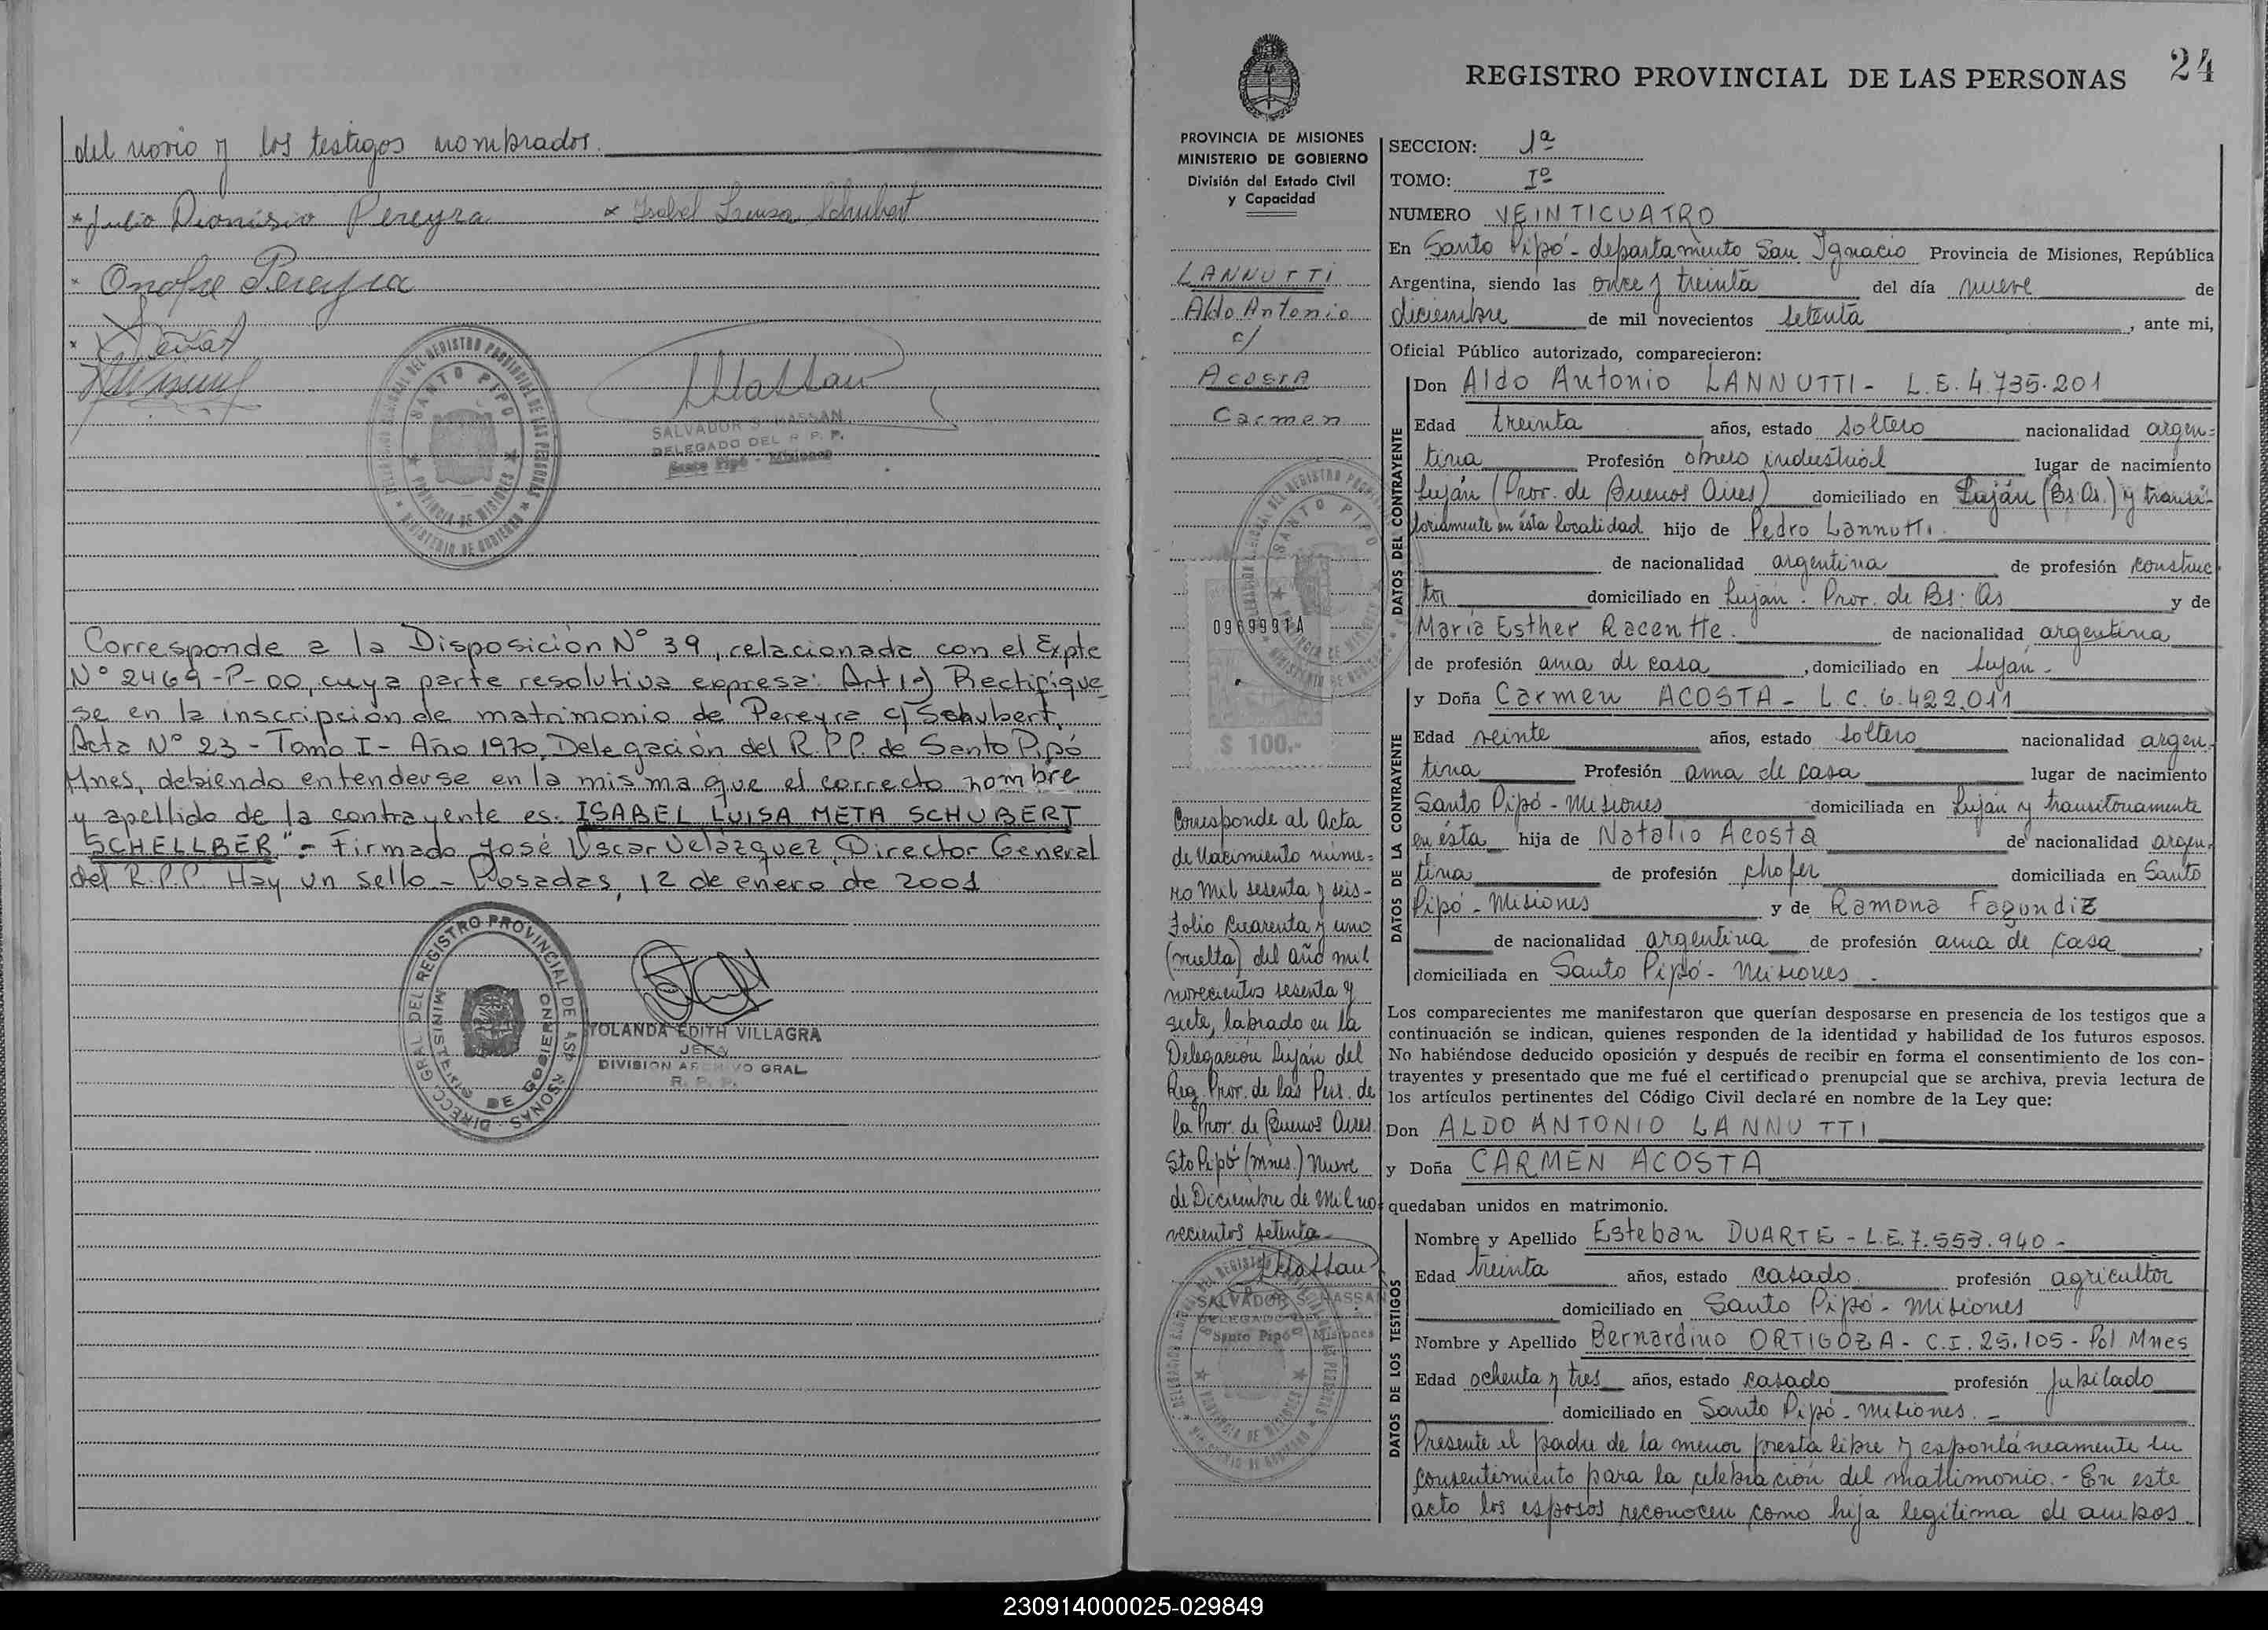 del novio y los testigos nombrados.
* Julio Dionisio Pereyra * Isabel Luisa Schubert
* Onofre Pereyra
SALVADOR S. HASSAN
DELEGADO DEL R. P. P.
Santo Pipó - Misiones
Corresponde a la Disposición N° 39, relacionada con el Expte
N° 2469-P-00, cuya parte resolutiva expresa: Art 1º) Rectifíque
se en la inscripción de matrimonio de Pereyra c/ Schubert,
Acta N° 23 - Tomo I - Año 1970, Delegación del R.P.P. de Santo Pipó
Mnes, debiendo entenderse en la misma que el correcto nombre
y apellido de la contrayente es: ISABEL LUISA META SCHUBERT
SCHELLBER".- Firmado José Oscar Velázquez, Director General
del R.P.P. Hay un sello - Posadas, 12 de enero de 2001
YOLANDA EDITH VILLAGRA
JEFA
DIVISION ARCHIVO GRAL
R. P. P.
24
REGISTRO PROVINCIAL DE LAS PERSONAS
PROVINCIA DE MISIONES
MINISTERIO DE GOBIERNO
División del Estado Civil
y Capacidad
LANNUTTI
Aldo Antonio
c/
Acosta
Carmen
0969991A
$ 100.-
Corresponde al Acta
de Nacimiento núme=
ro Mil sesenta y seis-
Folio Cuarenta y uno
(vuelta) del año mil
novecientos sesenta y
siete, labrado en la
Delegación Luján del
Reg. Prov. de las Pers. de
la Prov. de Buenos Aires.
Sto Pipó (mnes.) Nueve
de Diciembre de Mil no=
vecientos setenta-
SALVADOR S. HASSAN
DELEGADO
Santo Pipó Misiones
SECCION: 1ª
TOMO: Iº
NUMERO VEINTICUATRO
En Santo Pipó - departamento San Ignacio Provincia de Misiones, República
Argentina, siendo las once y treinta del día nueve de
diciembre de mil novecientos setenta, ante mi,
Oficial Público autorizado, comparecieron:
DATOS DEL CONTRAYENTE
Don Aldo Antonio LANNUTTI - L.E. 4.735.201
Edad treinta años, estado soltero nacionalidad argen=
tina Profesión obrero industrial lugar de nacimiento
Luján (Prov. de Buenos Aires) domiciliado en Luján (Bs.As.) y transi-
toriamente en ésta localidad hijo de Pedro Lannutti.
de nacionalidad argentina de profesión construc
tor domiciliado en Luján - Prov. de Bs. As y de
María Esther Racentte. de nacionalidad argentina
de profesión ama de casa, domiciliado en Luján -
DATOS DE LA CONTRAYENTE
y Doña Carmen ACOSTA - L.C. 6.422.011
Edad veinte años, estado soltero nacionalidad argen-
tina Profesión ama de casa lugar de nacimiento
Santo Pipó - Misiones domiciliada en Luján y transitoriamente
en ésta hija de Natalio Acosta de nacionalidad argen-
tina de profesión chofer domiciliada en Santo
Pipó - Misiones y de Ramona Fagundiz
de nacionalidad argentina de profesión ama de casa,
domiciliada en Santo Pipó - Misiones -
Los comparecientes me manifestaron que querían desposarse en presencia de los testigos que a
continuación se indican, quienes responden de la identidad y habilidad de los futuros esposos.
No habiéndose deducido oposición y después de recibir en forma el consentimiento de los con-
trayentes y presentado que me fué el certificado prenupcial que se archiva, previa lectura de
los artículos pertinentes del Código Civil declaré en nombre de la Ley que:
Don ALDO ANTONIO LANNUTTI
y Doña CARMEN ACOSTA
quedaban unidos en matrimonio.
DATOS DE LOS TESTIGOS
Nombre y Apellido Esteban DUARTE - L.E. 7.553.940 -
Edad treinta años, estado casado profesión agricultor
domiciliado en Santo Pipó - Misiones
Nombre y Apellido Bernardino ORTIGOZA - C.I. 25.105 - Pol. Mnes
Edad ochenta y tres años, estado casado profesión Jubilado
domiciliado en Santo Pipó - Misiones. -
Presente el padre de la menor presta libre y espontáneamente su
consentimiento para la celebración del matrimonio.- En este
acto los esposos reconocen como hija legítima de ambos
230914000025-029849